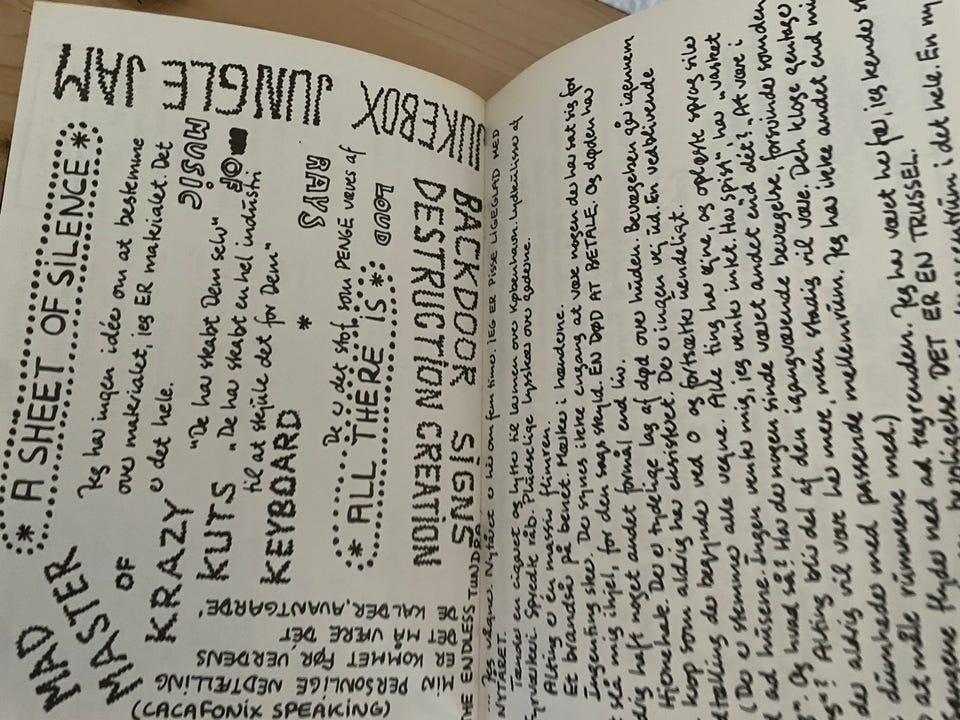 MAD
MASTER
OF
KRAZY
KUTS
KEYBOARD
* A SHEET OF SILENCE *
Jeg har ingen idéer om at bestemme
over materialet, jeg ER materialet. Det
er det hele.
"De har skabt Dem selv"
"De har skabt en hel industri
til at skjule det for Dem"
*
MUSIC
JUNGLE JAM
JUKEBOX
RAYS
LOUD
De er det stof som PENGE væves af
* ALL THERE IS *
BACKDOOR SIGNS
DESTRUCTION CREATION
(CACAFONIX SPEAKING)
MIN PERSONLIGE NEDTÆLLING
ER KOMMET FØR VERDENS
DET MÅ VÆRE DET
DE KALDER 'AVANTGARDE'
THE ENDLESS TUNDRA
Nytåret er om fem timer. JEG ER PISSE LIGEGLAD MED
NYTÅRET.
Tænder en cigaret og lytter til larmen over København. Lydkulisse af
fyrværkeri. Spredte råb. Pludselige lysskær over gaderne.
Alting er en massiv flimren.
Et brandsår på benet. Mærker i hænderne.
Ingenting sker. De synes ikke engang at være nogen der har sat sig for
slå mig ihjel, for den sags skyld. EN DØD AT BETALE. Og døden har
dig haft noget andet formål end liv.
Hjerneflak. Der er tydelige lag af død over huden. Bevægelsen går igennem
krop som aldrig har eksisteret. Der er ingen vej ud. En vedblivende
dtælling der begynder ved 0 og fortsætter uendeligt.
(Der er stemmer alle vegne. Alle ting har øjne, og opløste sprog siler
ad husene. Ingen venter mig, jeg venter intet. Har spist, har vasket
Og hvad så? Har der nogen sinde været andet end dét? At være i
? Alting blir del af den igangværende bevægelse, forsvinder sønden
der aldrig vil være her mere, men stadig vil være. Den kloge gentager
dumheder med passende mellemrum. Jeg har ikke andet end mi
at måle rummene med.)
flyder ned ad tagrenden. Jeg har været her før, jeg kender s
bevægelse. DET ER EN TRUSSEL.
i det hele. En my